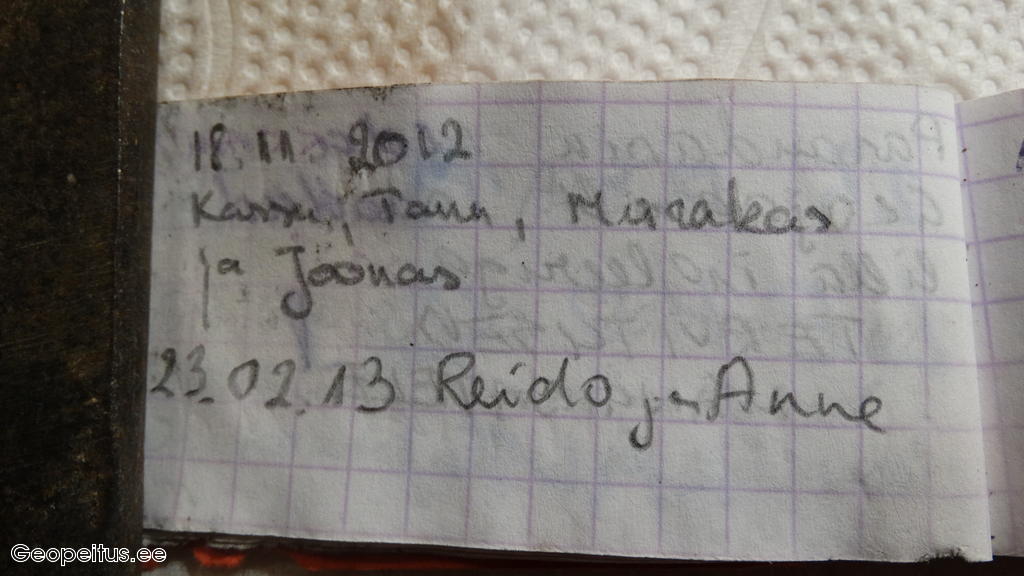 18.11 2012
Tanu, Marakas
ja Joonas
23.02.13 Reido ja Anne
Geopeitus.ee